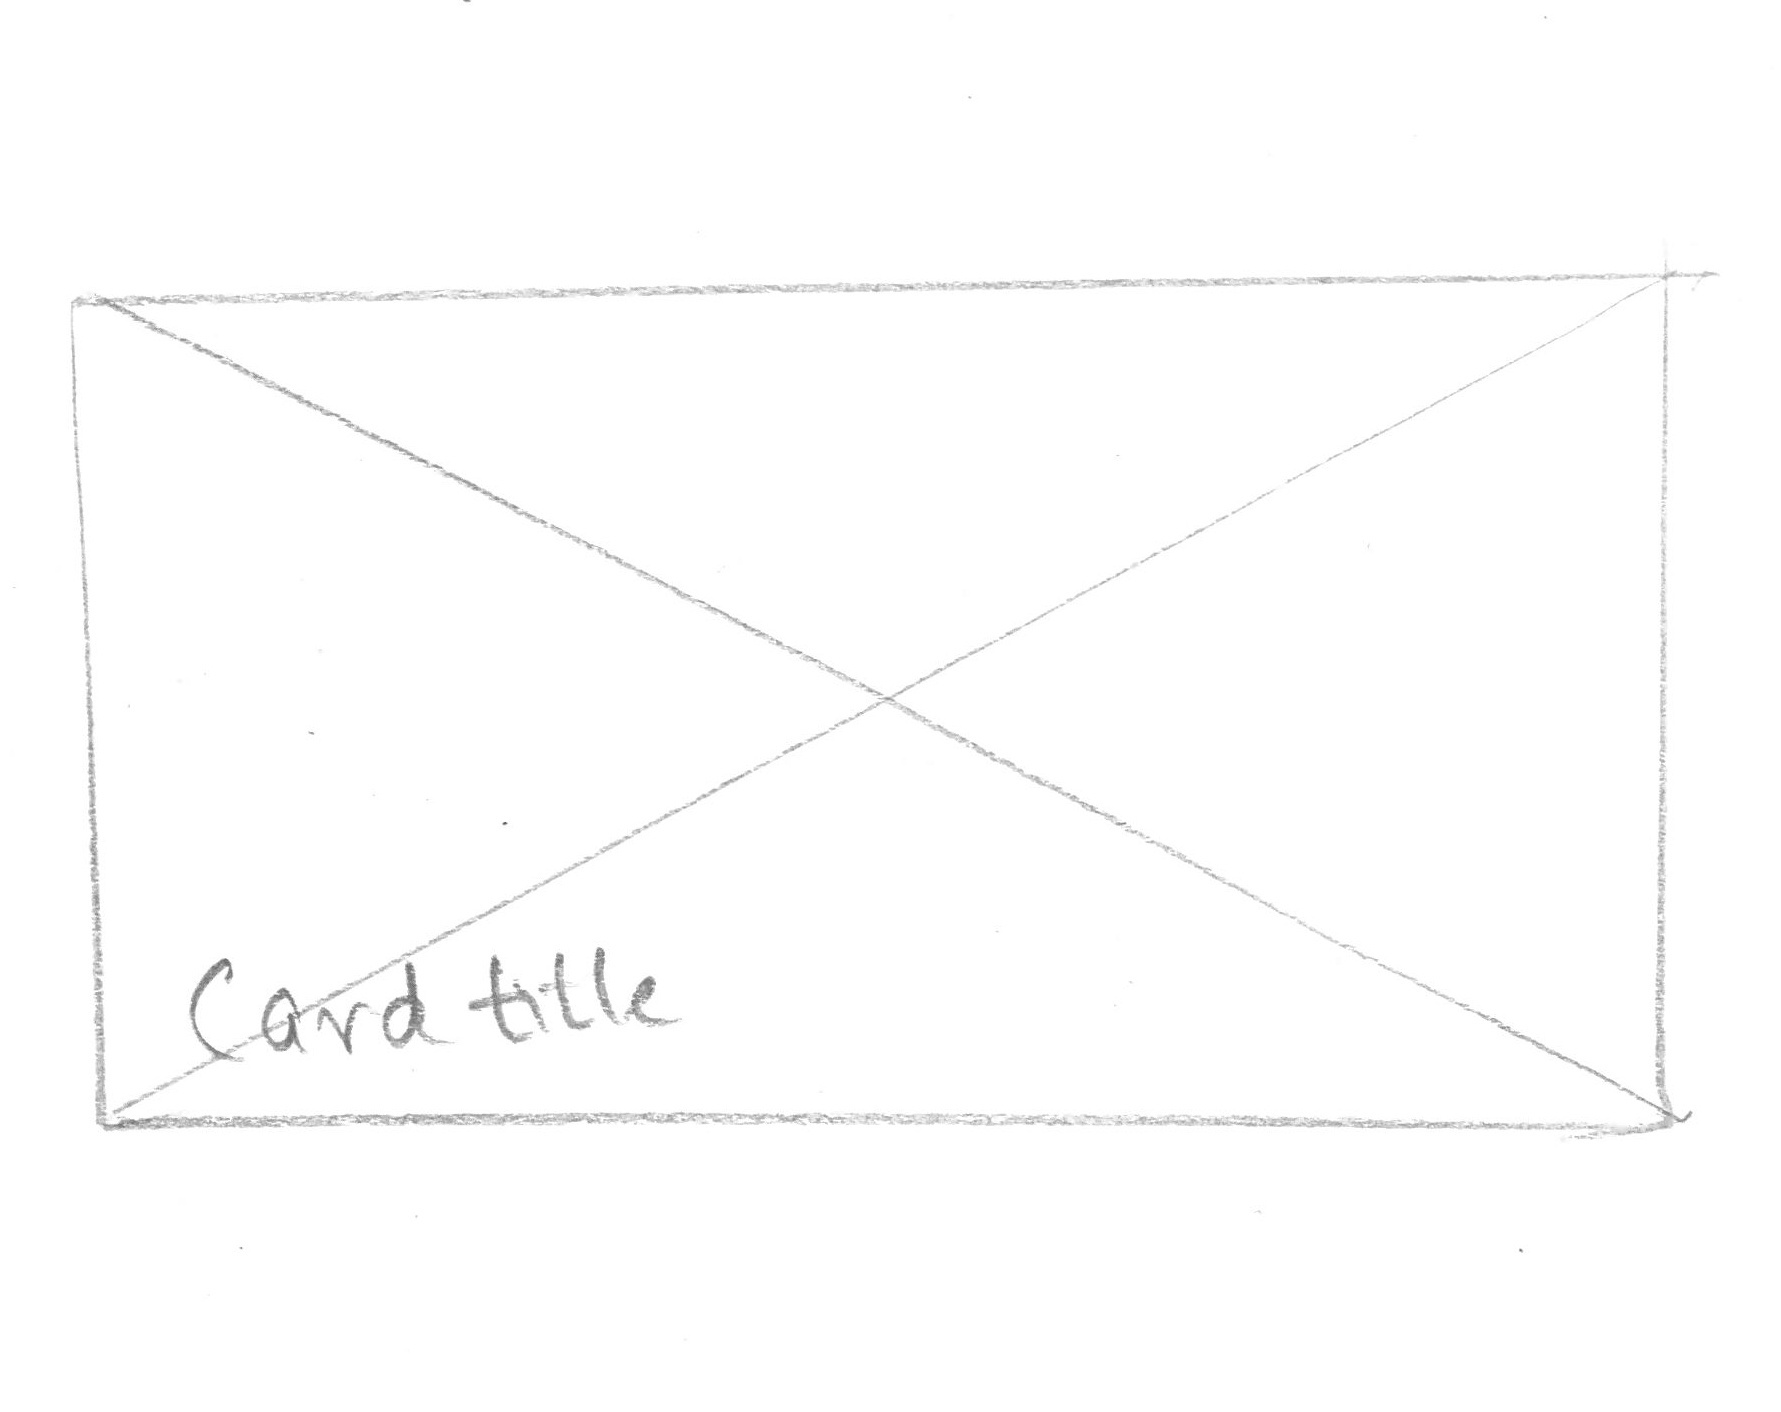 Card title